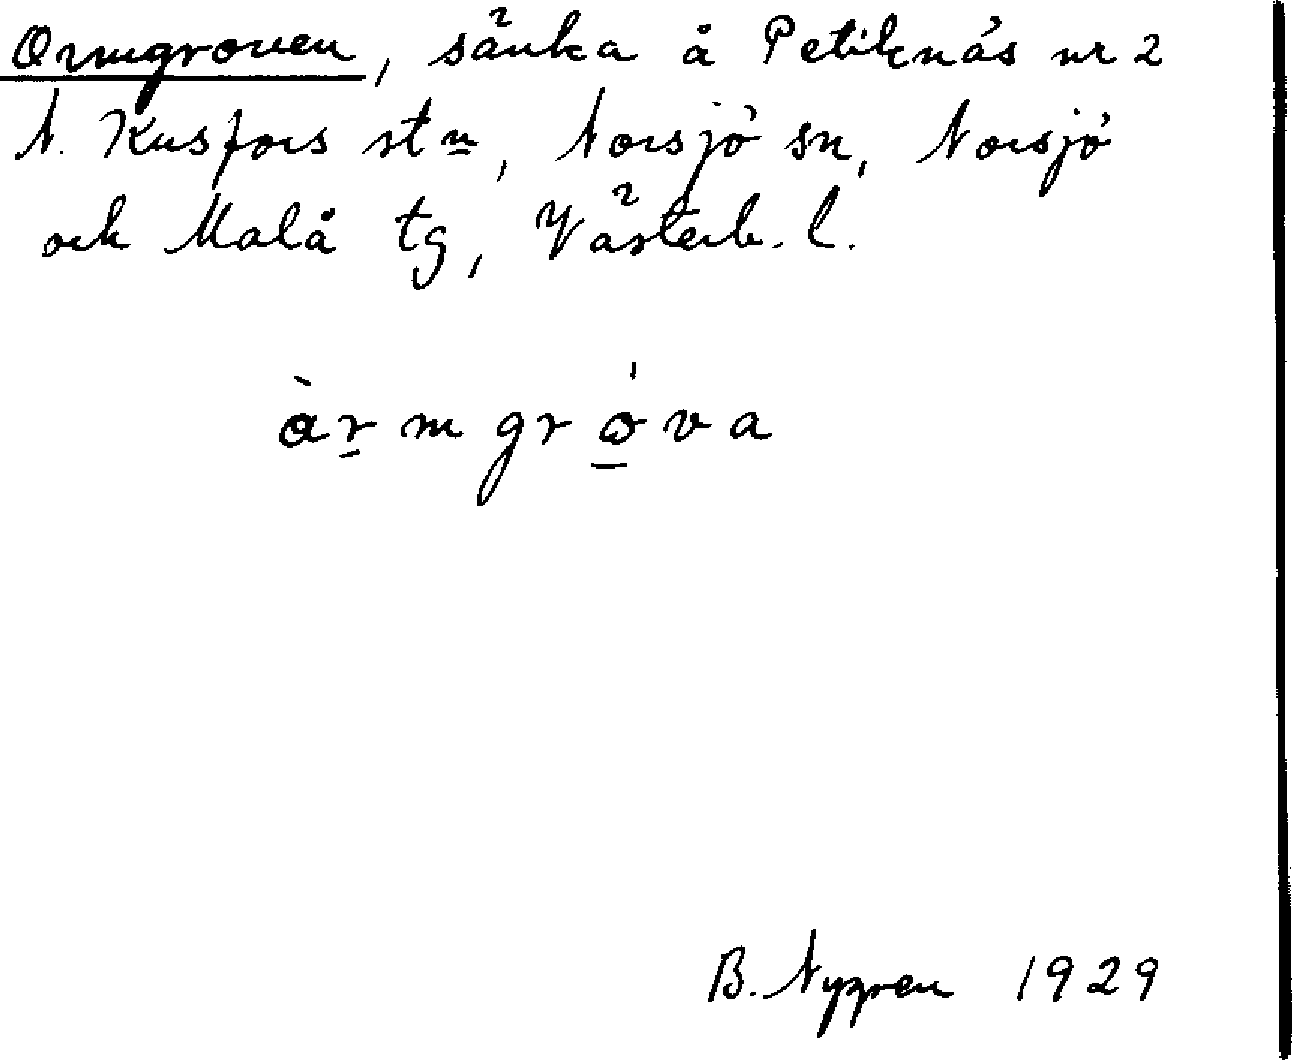 Ormgroven, sänka å Petiknäs nr 2
N. Kusfors stn, Norsjö sn, Norsjö
och Malå tg, Västerb. l.
àr̠mgro̠̍va
B. Nygren 1929